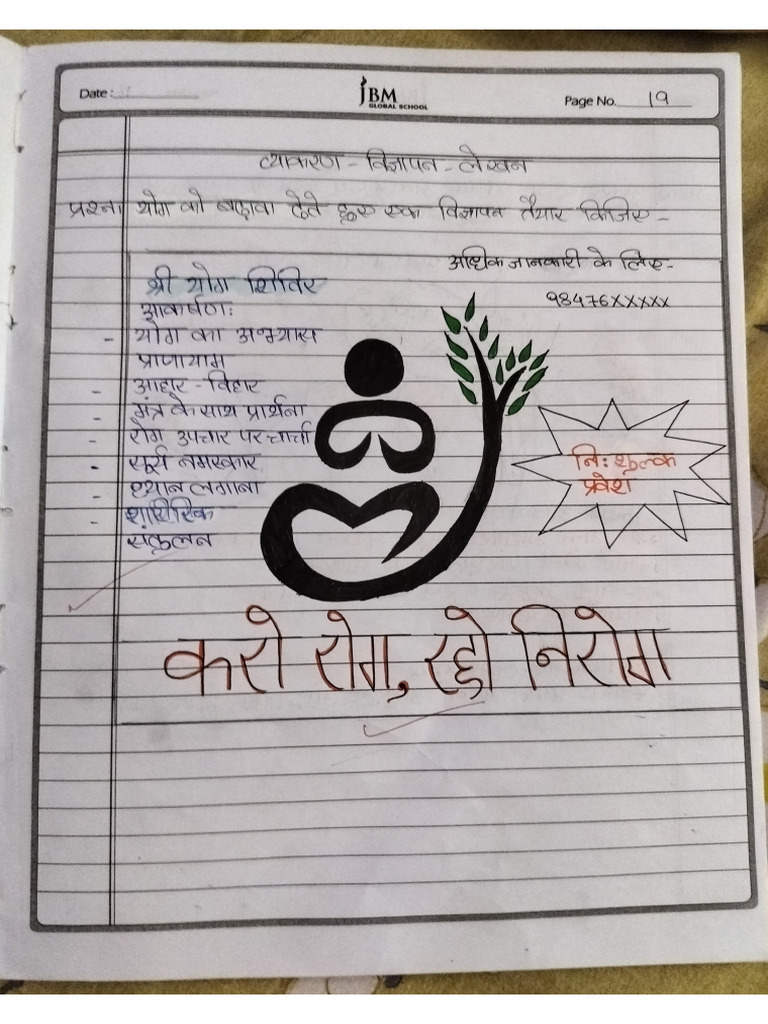 Date :
JBM
GLOBAL SCHOOL
Page No. 19
व्याकरण - विज्ञापन - लेखन
प्रश्न1 योग को बढ़ावा देते हुए एक विज्ञापन तैयार किजिए -
अधिक जानकारी के लिए -
98476XXXXX
श्री योग शिविर
आकर्षण:
- योग का अभ्यास
प्राणायाम
- आहार - विहार
- मंत्र के साथ प्रार्थना
- रोग उपचार पर चार्चा
- सूर्य नमस्कार
- ध्यान लगाना
- शारिरिक
संकूलन
नि: शुल्क
प्रवेश
करो रोग, रहो निरोग